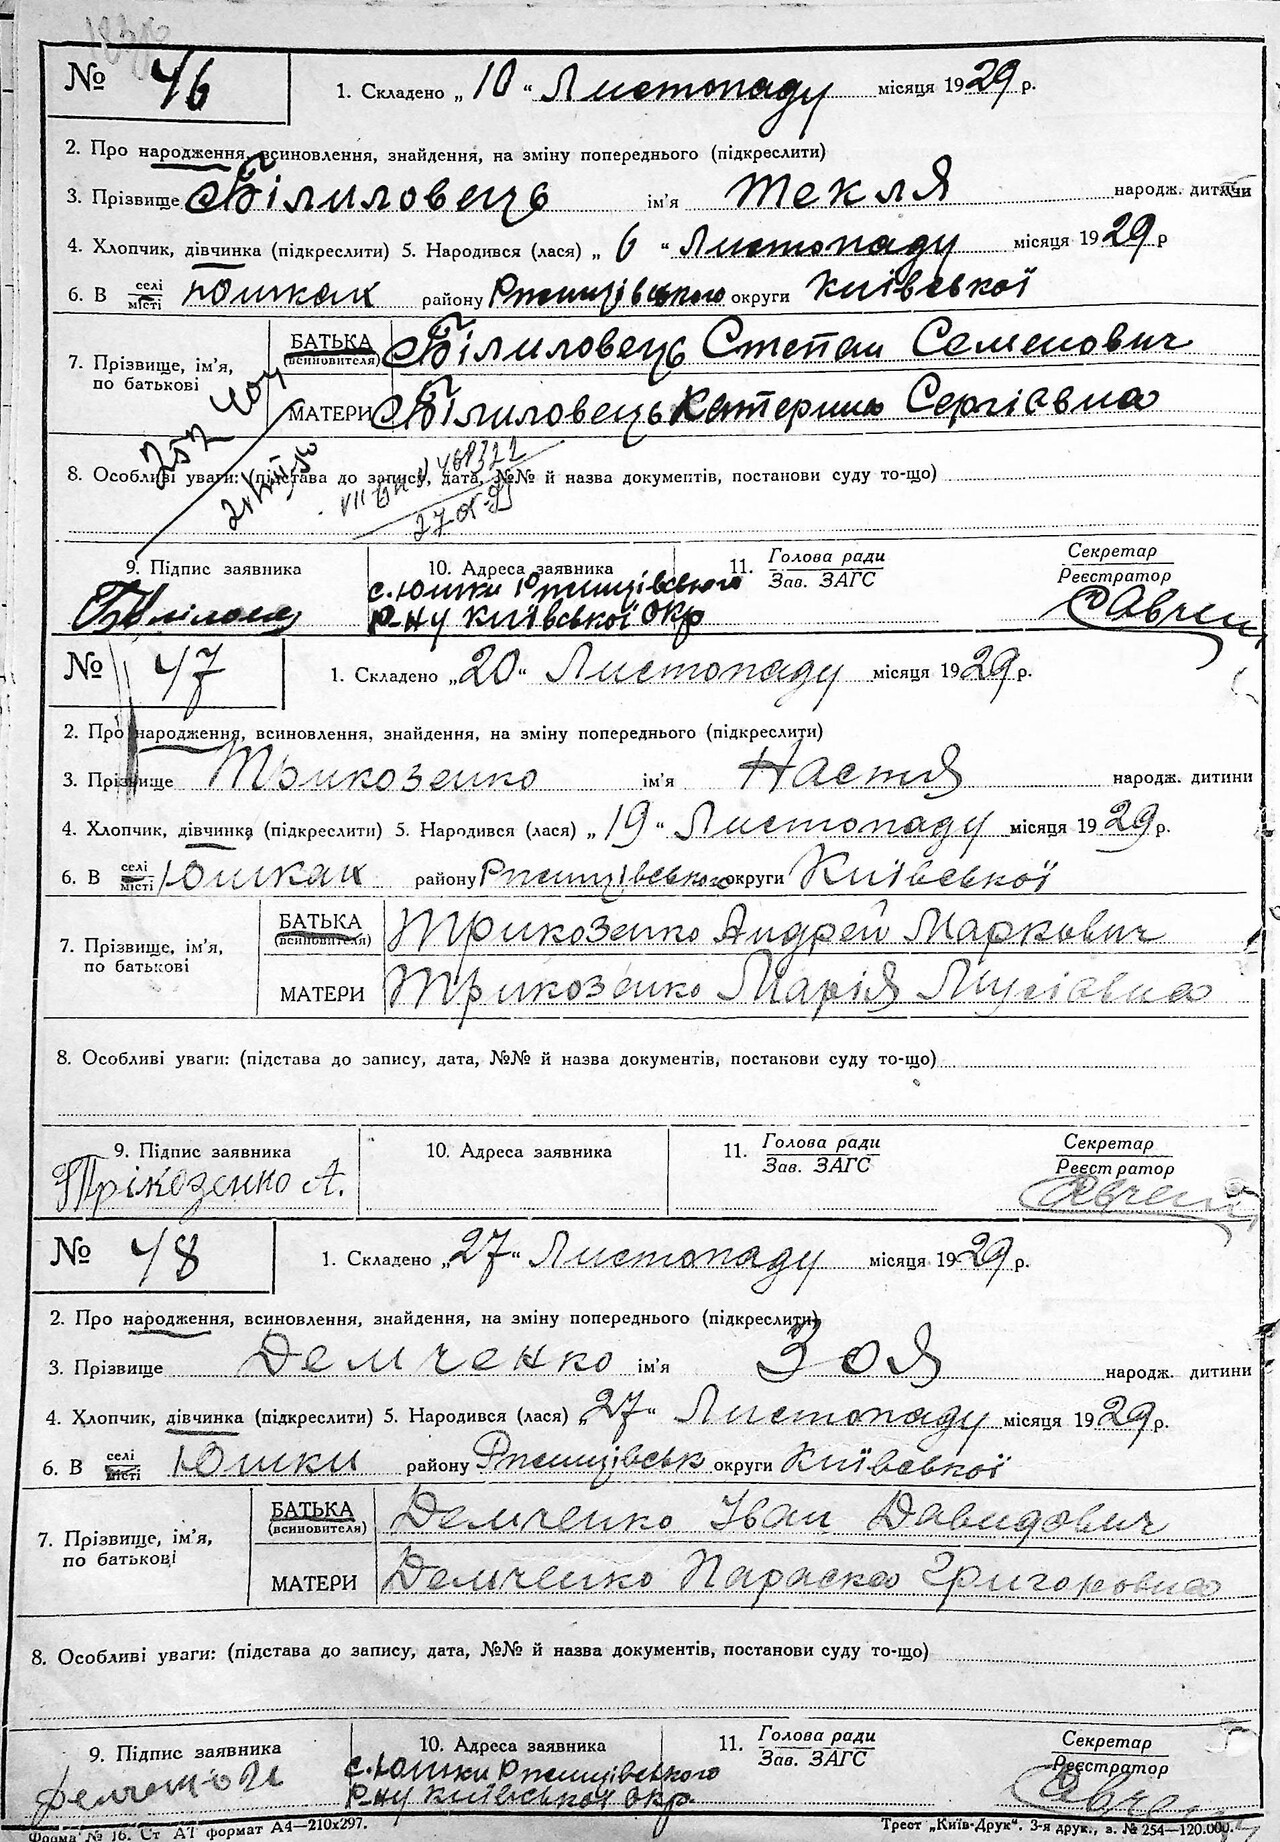 № 46 1. Складено „ 10 “ Листопаду місяця 1929 р.
2. Про народження, всиновлення, знайдення, на зміну попереднього (підкреслити)
3. Прізвище Білиловець ім'я Текля народж. дитини
4. Хлопчик, дівчинка (підкреслити) 5. Народився (лася) „ 6 “ Листопаду місяця 1929 р
6. В селі місті Юшках району Ржищівського округи Київської
7. Прізвище, ім'я, по батькові
БАТЬКА (всиновителя) Білиловець Степан Семенович
МАТЕРИ Білиловець Катерина Сергієвна
8. Особливі уваги: (підстава до запису, дата, №№ й назва документів, постанови суду то-що)
9. Підпис заявника 10. Адреса заявника 11. Голова ради Зав. ЗАГС Секретар Реєстратор
с. Юшки Ржищівського
Р-ну Київської Окр
№ 47 1. Складено „ 20 “ Листопаду місяця 1929 р.
2. Про народження, всиновлення, знайдення, на зміну попереднього (підкреслити)
3. Прізвище Трикозенко ім'я Настя народж. дитини
4. Хлопчик, дівчинка (підкреслити) 5. Народився (лася) „ 19 “ Листопаду місяця 1929 р.
6. В селі місті Юшках району Ржищівського округи Київської
7. Прізвище, ім'я, по батькові
БАТЬКА (всиновителя) Трикозенко Андрей Маркович
МАТЕРИ Трикозенко Марія Мусієвна
8. Особливі уваги: (підстава до запису, дата, №№ й назва документів, постанови суду то-що)
9. Підпис заявника 10. Адреса заявника 11. Голова ради Зав. ЗАГС Секретар Реєстратор
Трікозенко А.
№ 48 1. Складено „ 27 “ Листопаду місяця 1929 р.
2. Про народження, всиновлення, знайдення, на зміну попереднього (підкреслити)
3. Прізвище Демченко ім'я Зоя народж. дитини
4. Хлопчик, дівчинка (підкреслити) 5. Народився (лася) 27 “ Листопаду місяця 1929 р.
6. В селі місті Юшки району Ржищівськ округи Київської
7. Прізвище, ім'я, по батькові
БАТЬКА (всиновителя) Демченко Іван Давидович
МАТЕРИ Демченко Параска Григоровна
8. Особливі уваги: (підстава до запису, дата, №№ й назва документів, постанови суду то-що)
9. Підпис заявника 10. Адреса заявника 11. Голова ради Зав. ЗАГС Секретар Реєстратор
с. Юшки Ржищівського
Р-ну Київської Окр.
Форма № 16. Ст А1 формат А4—210х297. Трест „Київ-Друк“. 3-я друк., з. № 254—120.000.